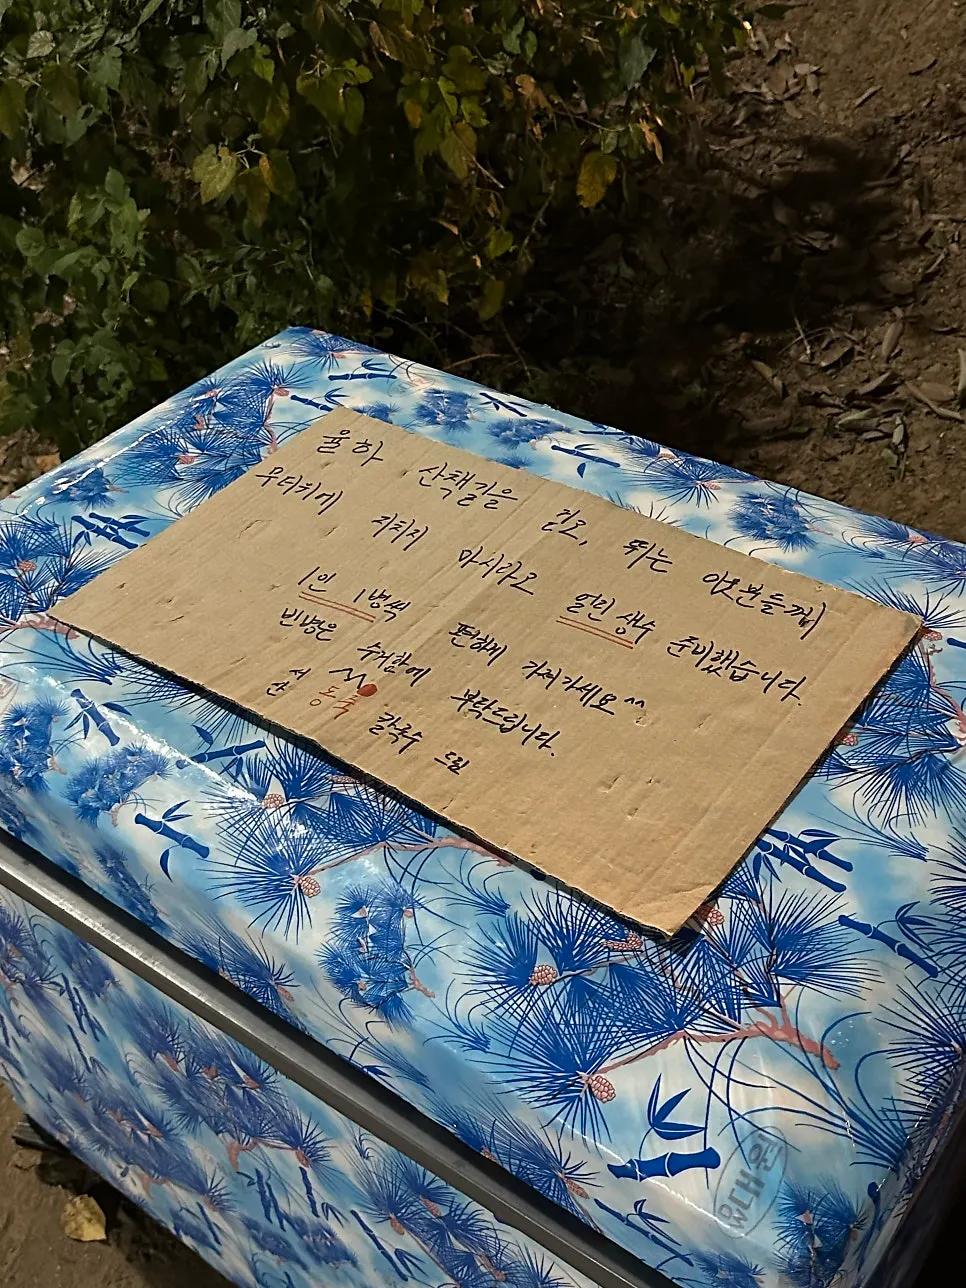 율하 산책길을 걷고, 뛰는 이웃분들께!
무더위에 지치지 마시라고 얼린 생수 준비했습니다.
1인 1병씩 편하게 가져가세요^^
빈병은 수거함에 부탁드립니다.
서산 동죽 칼국수 드림